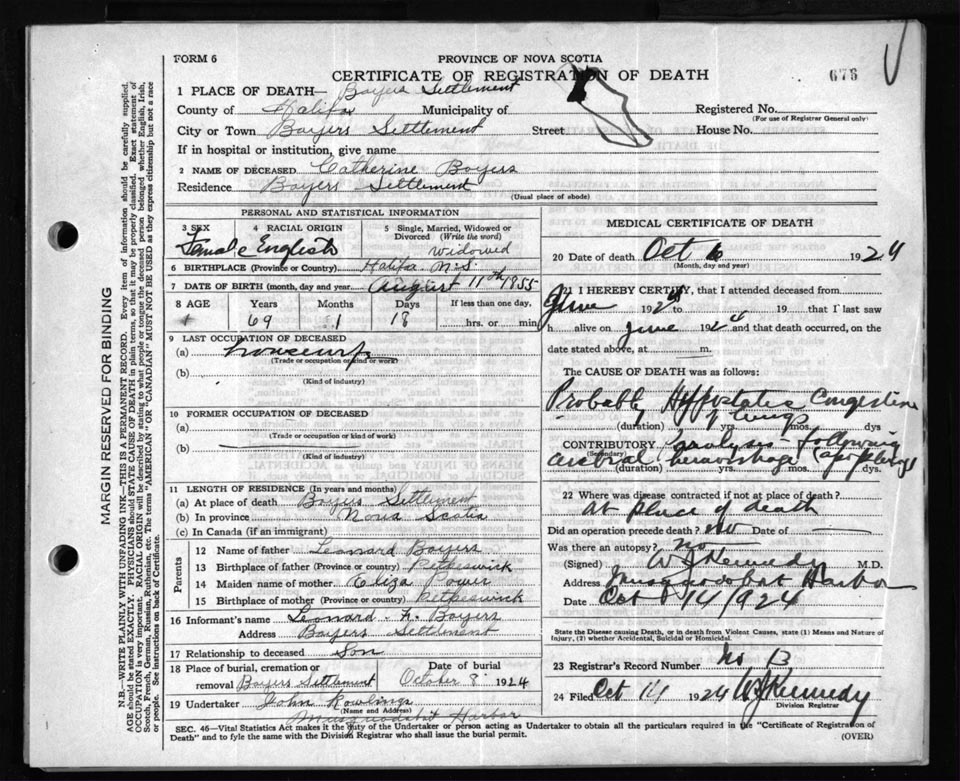 FORM 6
PROVINCE OF NOVA SCOTIA
CERTIFICATE OF REGISTRATION OF DEATH
676
1 PLACE OF DEATH— Boyers Settlement
County of Halifax Municipality of Registered No.
(For use of Registrar General only)
City or Town Boyers Settlement Street House No.
If in hospital or institution, give name
2 NAME OF DECEASED Catherine Boyers
Residence Boyers Settlement
(Usual place of abode)
PERSONAL AND STATISTICAL INFORMATION
3 SEX 4 RACIAL ORIGIN 5 Single, Married, Widowed or Divorced (Write the word)
Female English widowed
6 BIRTHPLACE (Province or Country) Halifax N.S.
7 DATE OF BIRTH (month, day and year) August 11th 1855
8 AGE Years Months Days If less than one day,
69 1 18 hrs. or min.
9 LAST OCCUPATION OF DECEASED
(a)
(Trade or occupation or kind of work)
(b)
(Kind of industry)
10 FORMER OCCUPATION OF DECEASED
(a)
(Trade or occupation or kind of work)
(b)
(Kind of industry)
11 LENGTH OF RESIDENCE (In years and months)
(a) At place of death Boyers Settlement
(b) In province Nova Scotia
(c) In Canada (if an immigrant)
Parents
12 Name of father Leonard Boyers
13 Birthplace of father (Province or country) Petpeswick
14 Maiden name of mother Eliza Power
15 Birthplace of mother (Province or country) Petpeswick
16 Informant's name Leonard A. Boyers
Address Boyers Settlement
17 Relationship to deceased Son
18 Place of burial, cremation or removal Boyers Settlement Date of burial October 8 1924
19 Undertaker John Rowlings
(Name and Address)
Musquodobit Harbor
MEDICAL CERTIFICATE OF DEATH
20 Date of death Oct 6 1924
(Month, day and year)
21 I HEREBY CERTIFY, that I attended deceased from
June 1924 to 19 that I last saw
h alive on June 1924 and that death occurred, on the
date stated above, at m.
The CAUSE OF DEATH was as follows:
Probably Hypostatic Congestion
of lungs
(duration) yrs. mos. dys
CONTRIBUTORY paralysis - following
(Secondary)
cerebral hemorrhage (apoplexy)
(duration) yrs. mos. dys.
22 Where was disease contracted if not at place of death?
At place of death
Did an operation precede death? no Date of
Was there an autopsy? no
(Signed) W J Kennedy M.D.
Address Musquodobit Harbor
Date Oct 14 1924
State the Disease causing Death, or in death from Violent Causes, state (1) Means and Nature of
Injury, (2) whether Accidental, Suicidal or Homicidal.
23 Registrar's Record Number No 13
24 Filed Oct 14 1924 W J Kennedy
Division Registrar
SEC. 46—Vital Statistics Act makes it the duty of the Undertaker or person acting as Undertaker to obtain all the particulars required in the "Certificate of Registration of
Death" and to fyle the same with the Division Registrar who shall issue the burial permit.
(OVER)
MARGIN RESERVED FOR BINDING
N.B.—WRITE PLAINLY WITH UNFADING INK—THIS IS A PERMANENT RECORD. Every item of information should be carefully supplied.
AGE should be stated EXACTLY. PHYSICIANS should STATE CAUSE OF DEATH in plain terms, so that it may be properly classified. Exact statement of
OCCUPATION is very important. RACIAL ORIGIN will be described by stating to what people or tongue the deceased person belonged whether English, Irish,
Scotch, French, German, Russian, Ruthenian, etc. The terms "AMERICAN" OR "CANADIAN" MUST NOT BE USED as they express citizenship but not a race
or people. See instructions on back of Certificate.